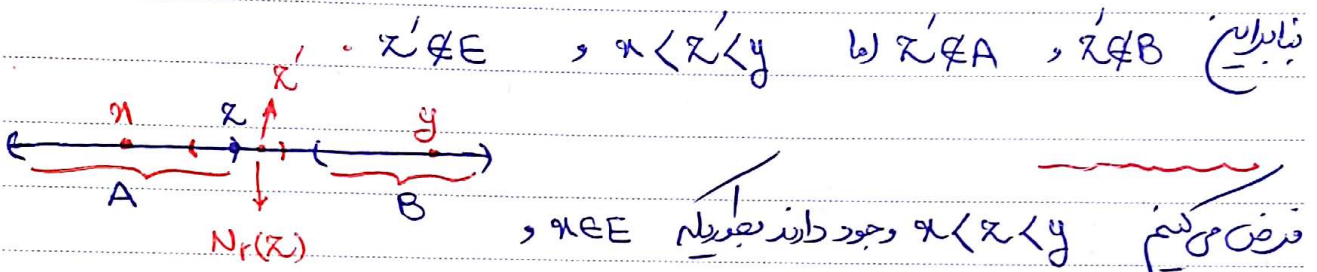 بنابراین z′∉B و z′∉A اما x<z′<y و z′∉E.
z′
x z y
A B
N_r(z)
فرض می‌کنیم x<z<y وجود دارند بطوریکه x∈E و